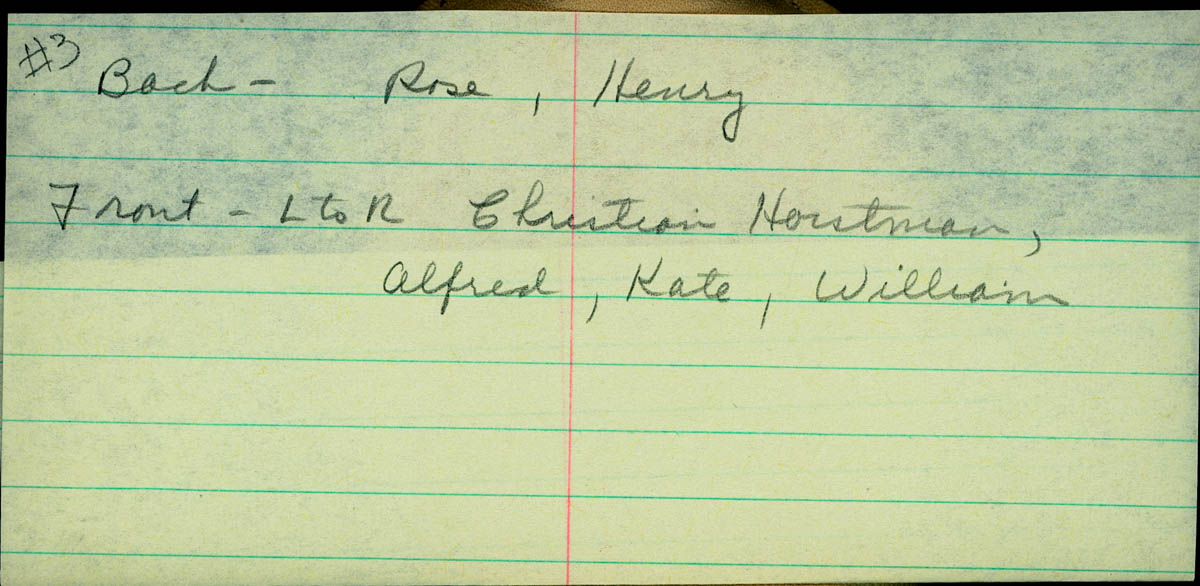 #3
Back - Rose, Henry
Front - L to R Christian Horstman,
Alfred, Kate, William